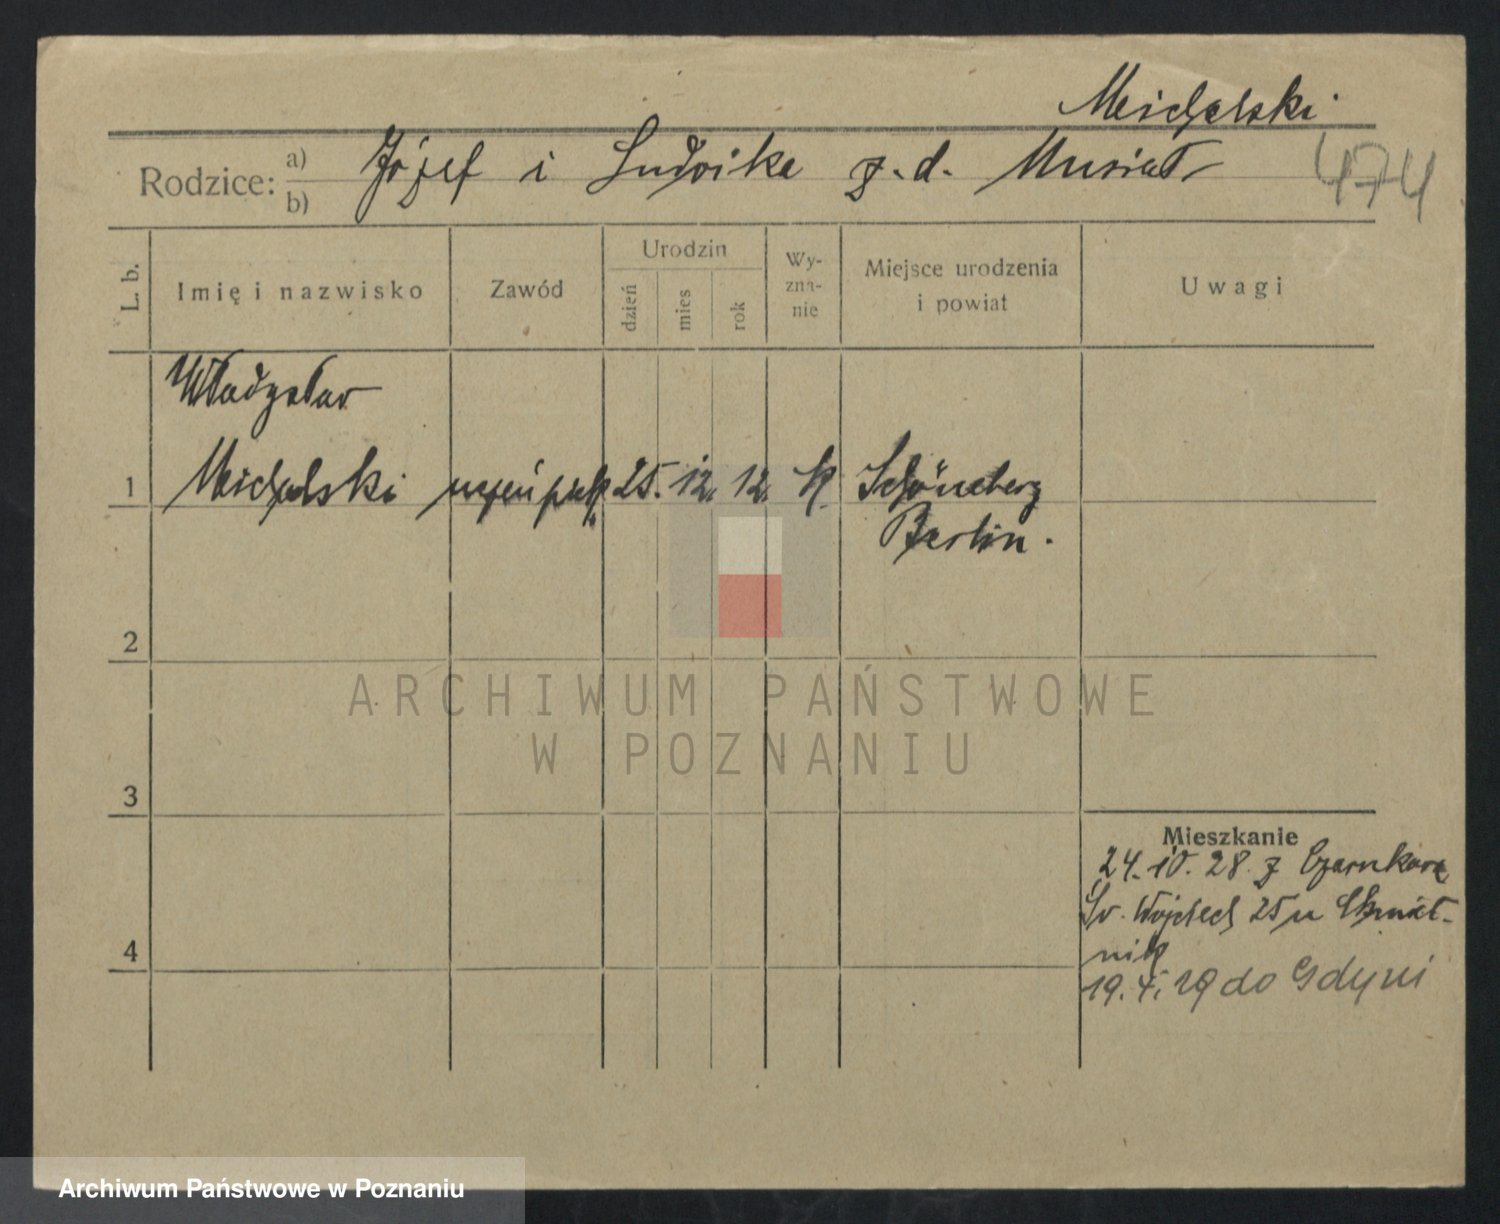 Michalski
Rodzice: a) b) Józef i Ludwika z. d. Musiał
474
L. b.
Imię i nazwisko
Zawód
Urodzin
dzień
mies
rok
Wy-
zna-
nie
Miejsce urodzenia
i powiat
Uwagi
Władysław
1 Michalski uczeń piek. 25. 12. 12. k. Schöneberg
Berlin.
2
ARCHIWUM PAŃSTWOWE
W POZNANIU
3
Mieszkanie
24. 10. 28. z Czarnkowa
Św. Wojciech 25 u
4
nik
19. 4. 29 do Gdyni
Archiwum Państwowe w Poznaniu